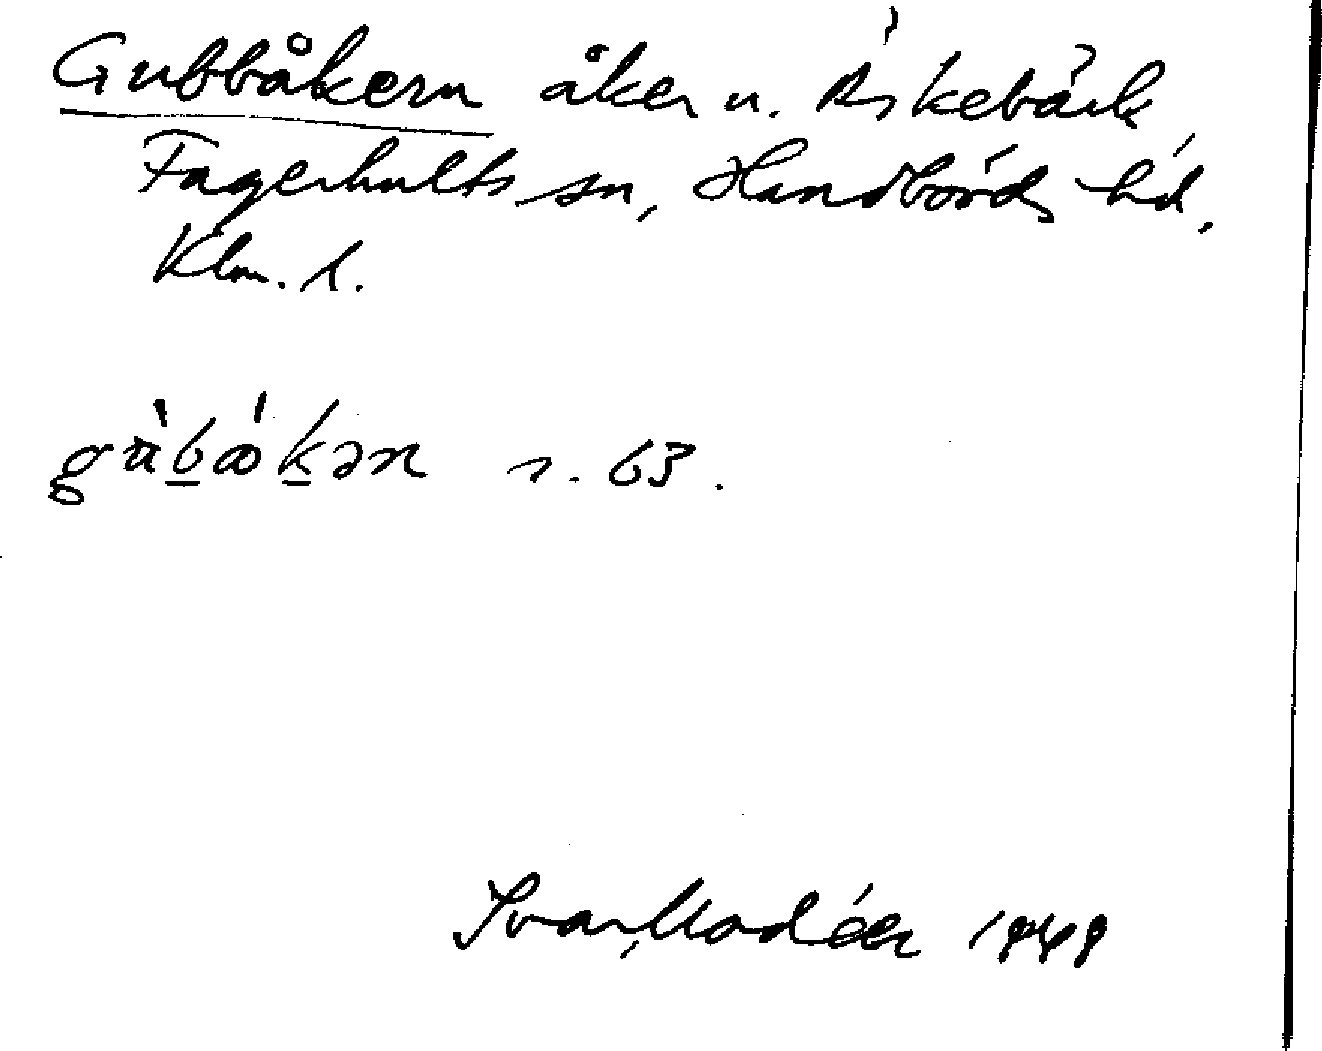 Gubbåkern åker u. Äskebäck,
Fagerhults sn, Handbörds hd,
Klm. l.
gùbǻkən s. 63.
Ivar Modéer 1949